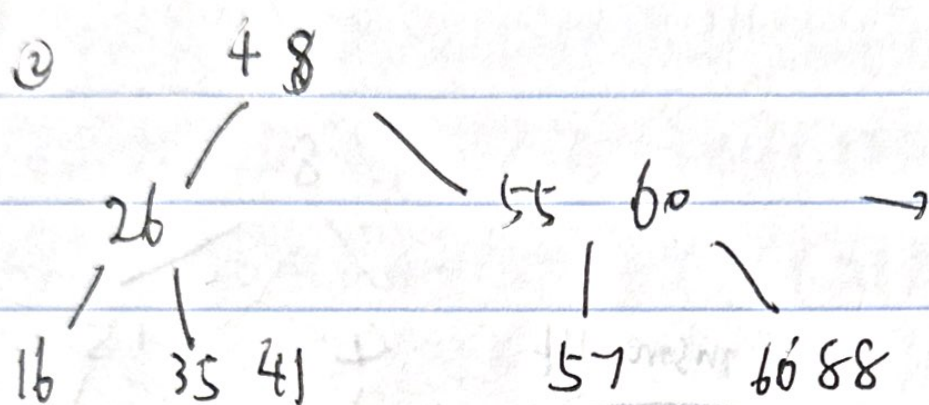 ② 48
26 55 60 →
16 35 41 57 66 88